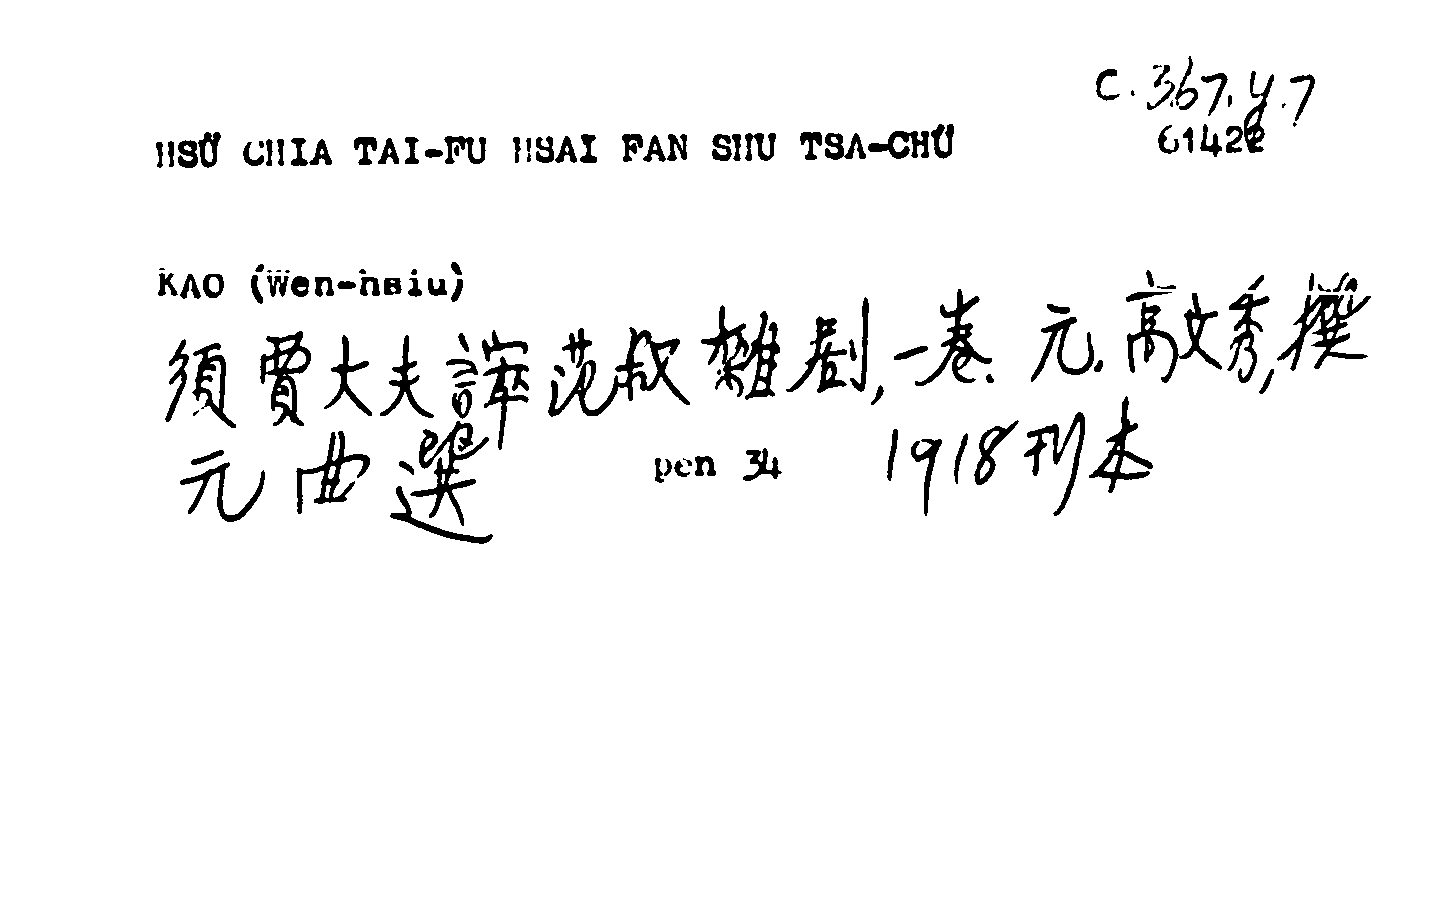 C.367.y.7
HSÜ CHIA TAI-FU HSAI FAN SHU TSA-CHÜ 61422
KAO (Wen-hsiu)
須賈大夫誶范叔雜劇,一卷. 元.高文秀,撰
元曲選 pen 34 1918刊本